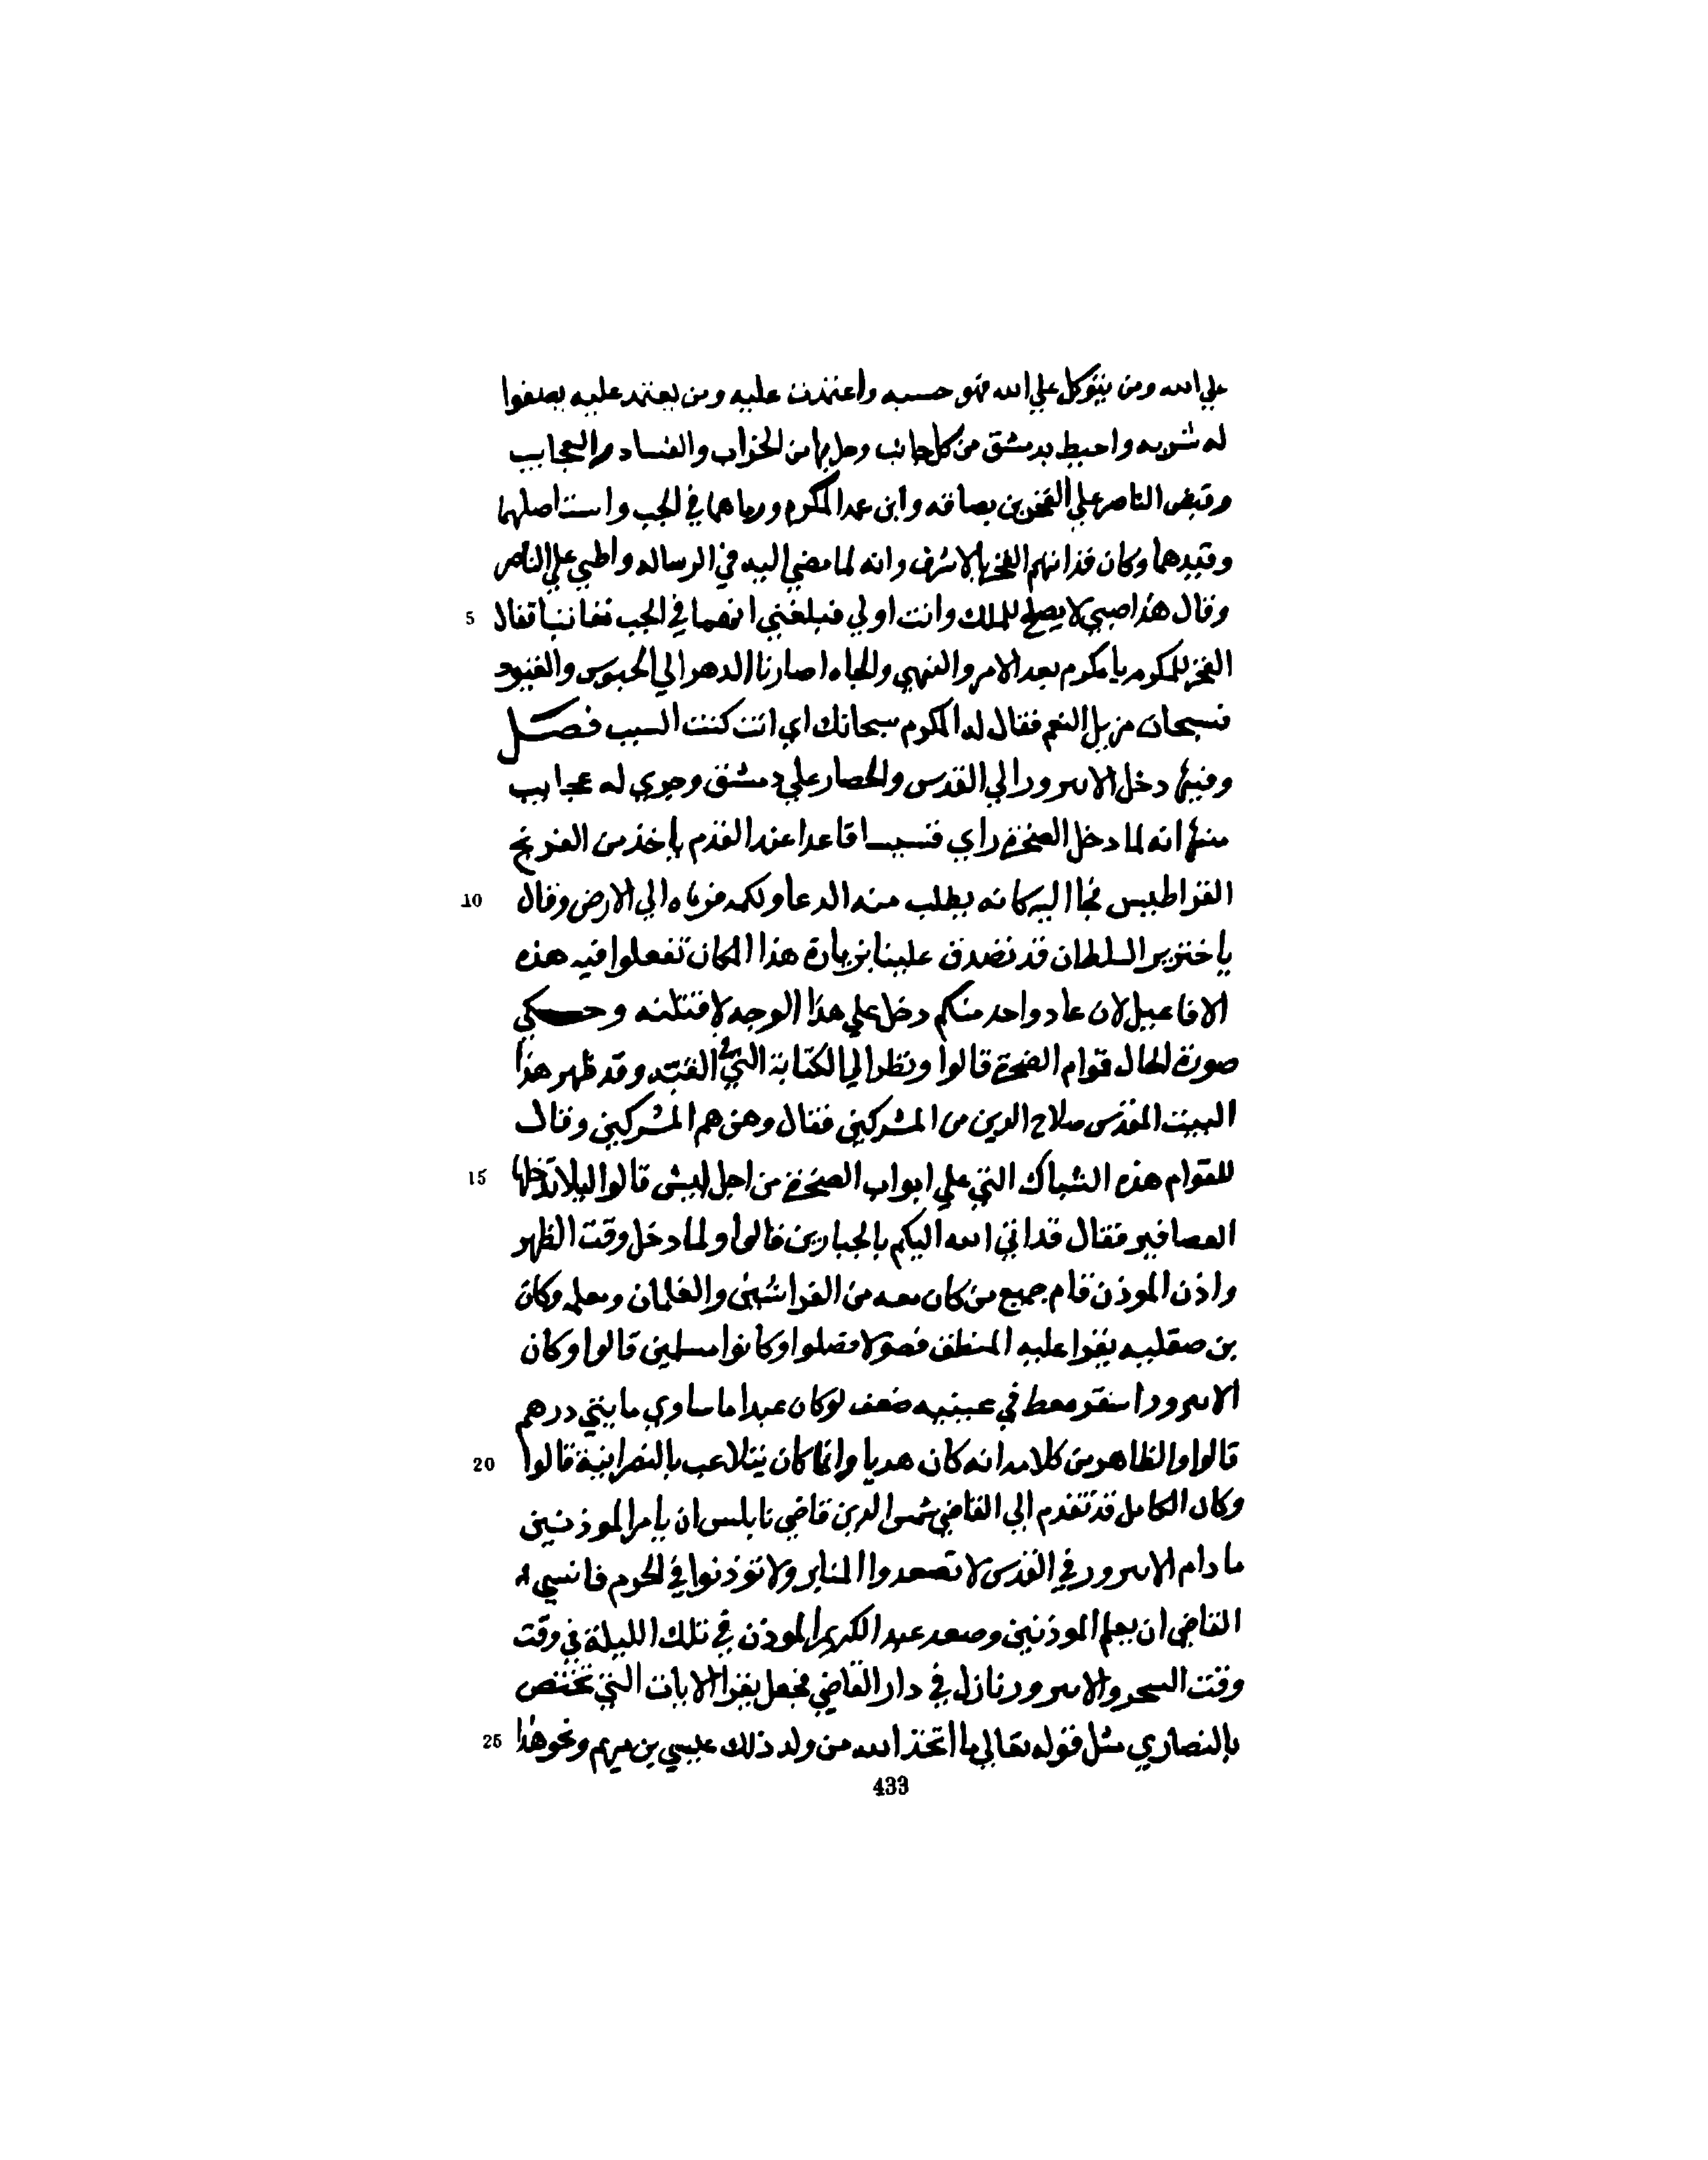 علي الله ومن يتوكل علي الله فهو حسبه واعتمدت عليه ومن يعتمد عليه يصفوا
له شربه واحيط بدمشق من كل جانب وحل بها من الخراب والفساد والعجايب
وقبض الناصر علي الفخر بن بصاقه وابن عمه المكرم ورماهما في الجب واستاصلهما
وقيدهما وكان قد اتهم الفخر بالاشرف وانه لما مضي اليه في الرساله واطبي علي الناصر
5 وقال هذا صبي لا يصلح للملك وانت اولي فبلغني انهما في الجب تعاتبا فقال
الفخر للمكرم يا مكرم بعد الامر والنهي والجاه اصارنا الدهر الي الحبوس والقيود
فسبحان مزيل النعم فقال له المكرم سبحانك اي انت كنت السبب فصل
وفيها دخل الانبرور الي القدس والحصار علي دمشق وجري له عجايب
منها انه لما دخل الصخرة راي قسيسا قاعدا عند القدم ياخذ من الفرنج
10 القراطيس فجا اليه كانه يطلب منه الدعا ولكمه فرماه الي الارض وقال
يا خنزير السلطان قد تصدق علينا بزيارة هذا المكان تفعلوا فيه هذه
الافاعيل لان عاد واحد منكم دخل علي هذا الوجه لاقتلنه وحكي
صورة الحال قوام الصخرة قالوا ونظر الي الكتابة التي في القبه وقد طهر هذا
البيت المقدس صلاح الدين من المشركين فقال ومن هم المشركين وقال
15 للقوام هذه الشباك التي علي ابواب الصخرة من اجل ايش قالوا ليلا تدخلها
العصافير فقال قد اتي الله اليكم بالجبارين قالوا ولما دخل وقت الظهر
واذن الموذن قام جميع من كان معه من الفراشين والغلمان ومعلمه وكان
من صقليه يقرا عليه المنطق فصولا فصلوا وكانوا مسلمين قالوا وكان
الانبرور اشقر معط في عينيه ضعف لو كان عبدا ما ساوي مايتي درهم
20 قالوا والظاهر من كلامه انه كان دهريا وانما كان يتلاعب بالنصرانية قالوا
وكان الكامل قد تقدم الي القاضي شمس الدين قاضي نابلس ان يامر الموذنين
ما دام الانبرور في القدس لا تصعدوا المنابر ولا توذنوا في الحرم فانسي
القاضي ان يعلم الموذنين وصعد عبد الكريم الموذن في تلك الليلة في وقت
وقت السحر والانبرور نازل في دار القاضي فجعل يقرا الايات التي تختص
25 بالنصاري مثل قوله تعالي ما اتخذ الله من ولد ذلك عيسي بن مريم ونحو هذا
433